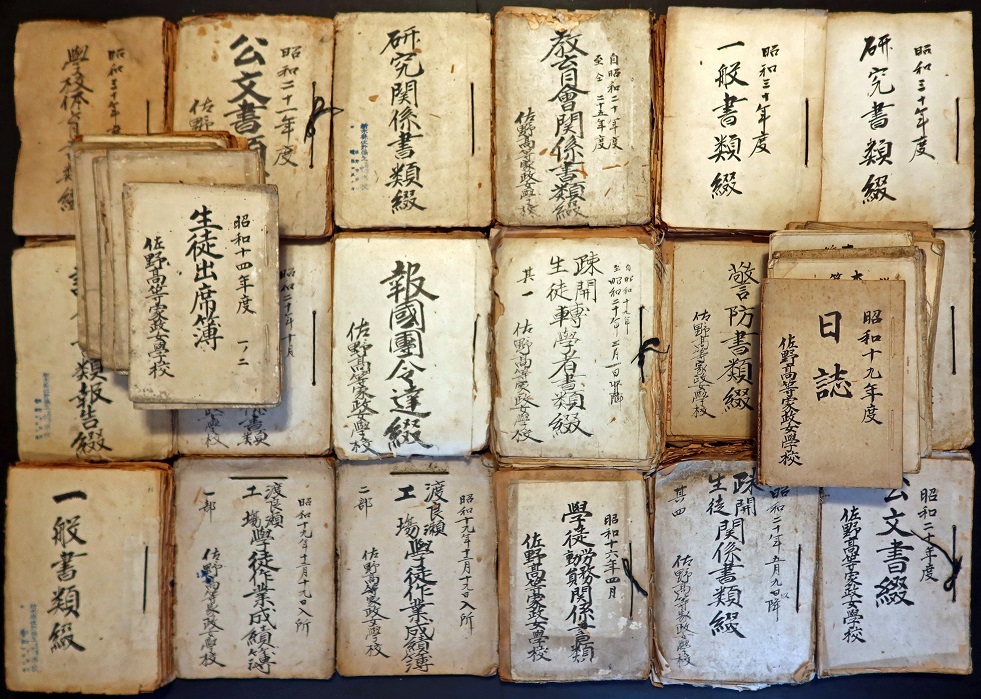 昭和三十年
學校体育
昭和二十一年度
公文書類
佐野
研究関係書類綴
自昭和二十一年度
至仝 二十五年度
教育會関係書類綴
佐野高等家政女學校
昭和三十年度
一般書類綴
昭和三十年度
研究書類綴
昭和十四年度
一ノ二
生徒出席簿
佐野高等家政女學校
類報告綴
昭和二十年十月
書類
報國團令達綴
佐野高等家政女學校
疎開轉學者書類綴
生徒
其一
佐野高等家政女學校
警防書類綴
佐野高等家政女學校
昭和十九年度
日誌
佐野高等家政女學校
一般書類綴
昭和十九年十二月十九日入所
渡良瀬
工場學徒作業成績簿
一部
佐野高等家政女學校
昭和十九年十二月十三日入所
渡良瀬
工場學徒作業成績簿
二部
佐野高等家政女學校
昭和十六年四月
學徒勤労務関係書類
佐野高等家政女學校
昭和二十年五月九日以降
疎開
生徒関係書類綴
其四
佐野高等家政女學校
昭和二十年度
公文書綴
佐野高等家政女學校